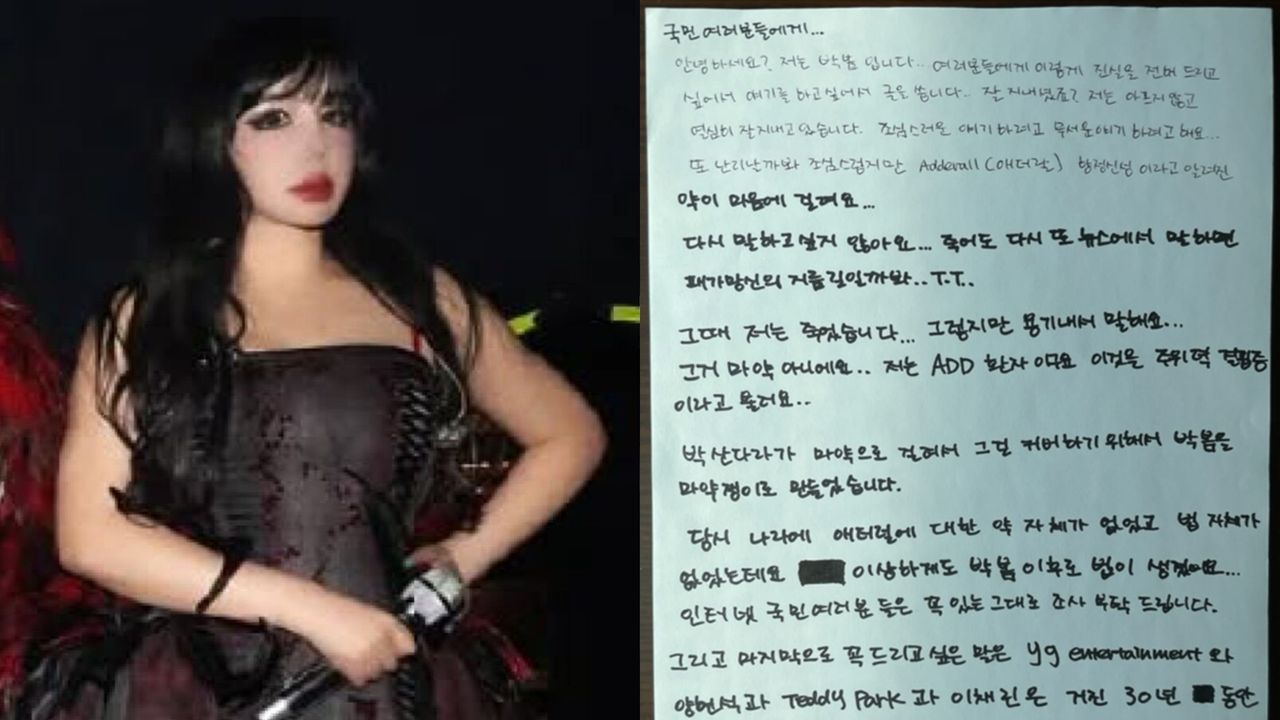 국민 여러분들에게...
안녕하세요? 저는 박봄 입니다... 여러분들에게 이렇게 진실을 전해 드리고
싶어서 얘기를 하고싶어서 글을 씁니다.. 잘 지내셨죠? 저는 아프지않고
열심히 잘지내고 있습니다. 조심스러운 얘기 하려고 무서운얘기 하려고 해요...
또 난리날까봐 조심스럽지만 Adderall (애더랄) 향정신성 이라고 알려진
약이 마음에 걸려요...
다시 말하고싶지 않아요... 죽어도 다시 또 뉴스에서 말하면
패가망신의 지름길일까봐.. T.T..
그때 저는 죽었습니다... 그렇지만 용기내서 말해요...
그거 마약 아니에요.. 저는 ADD 환자 이구요 이것은 주위력 결핍증
이라고 불려요..
박산다라가 마약으로 걸려서 그걸 커버하기 위해서 박봄을
마약쟁이로 만들었습니다.
당시 나라에 애더럴에 대한 약 자체가 없었고 법 자체가
없었는데요 이상하게도 박봄 이후로 법이 생겼어요...
인터넷 국민여러분 들은 꼭 있는그대로 조사 부탁 드립니다.
그리고 마지막으로 꼭 드리고 싶은 말은 yg entertainment 와
양현석과 Teddy Park 과 이채린은 거진 30년 동안